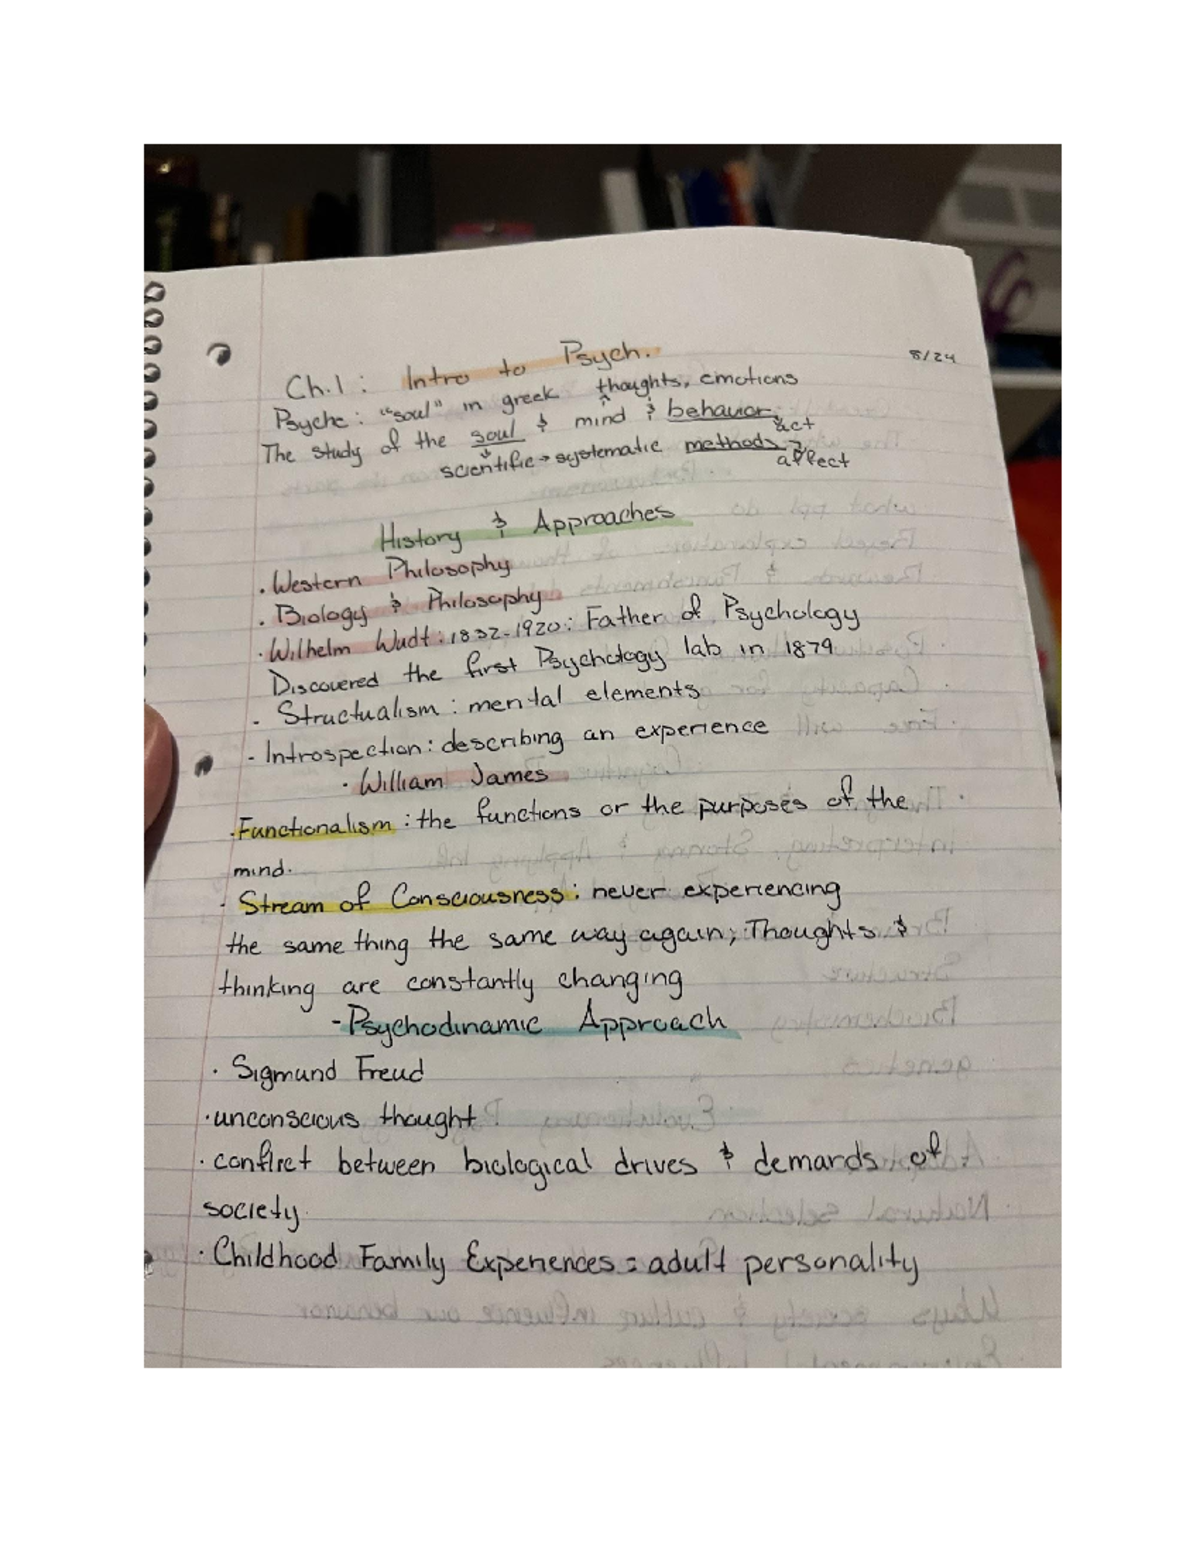 Ch.1: Intro to Psych.
8/24
Psyche: "soul" in greek thoughts, emotions
The study of the soul & mind & behavior → act
scientific → systematic methods → affect
History & Approaches
. Western Philosophy
. Biology & Philosophy
. Wilhelm Wudt: 1832-1920: Father of Psychology
Discovered the first Psychology lab in 1879
- Structualism: mental elements
- Introspection: describing an experience
· William James
. Functionalism: the functions or the purposes of the
mind.
- Stream of Consciousness: never experiencing
the same thing the same way again; Thoughts &
thinking are constantly changing
- Psychodinamic Approach
· Sigmund Freud
· unconscious thought
· conflict between biological drives & demands of
society
· Childhood Family Experiences = adult personality